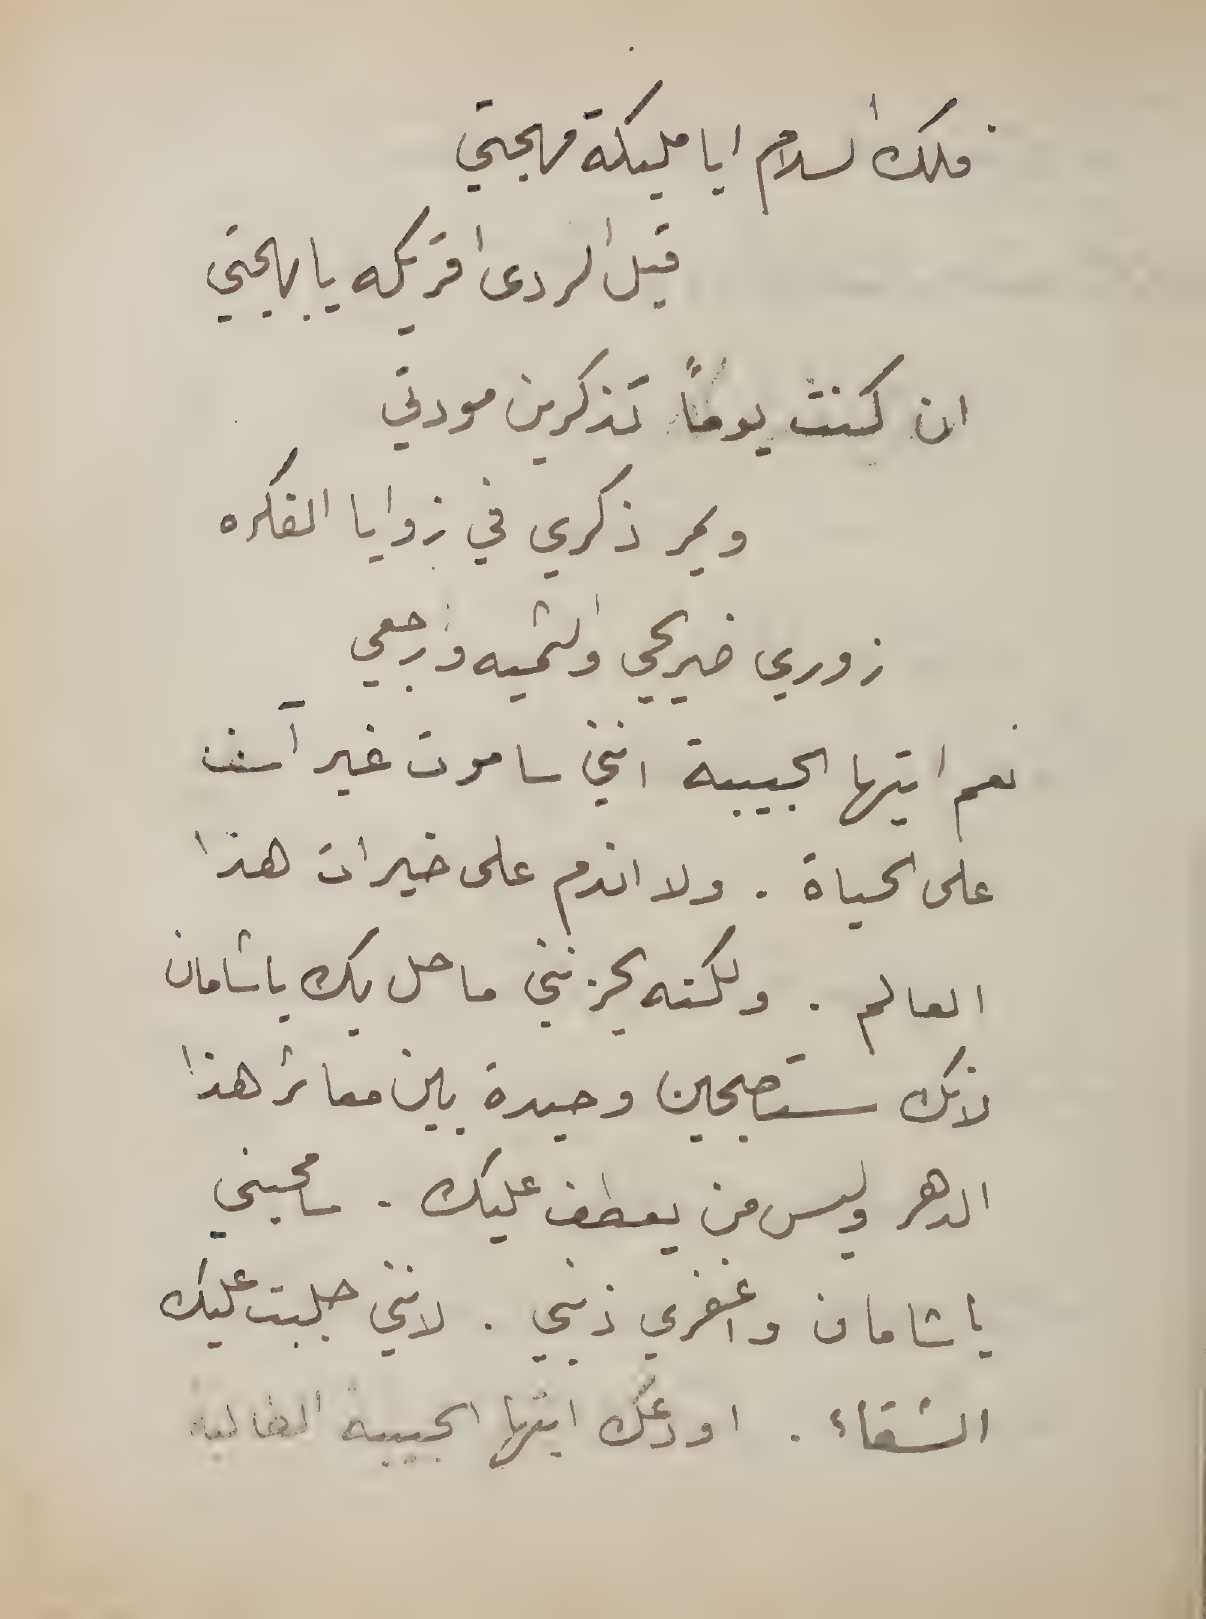 فلك السلام ايا مليكة مهجتي
قبل الردى اقريكه يا بهجتي
ان كنت يوماً تذكرين مودتي
ويمر ذكري في زوايا الفكره
زوري ضريحي والثميه وارجعي
نعم ايتها الحبيبة انني ساموت غير آسف
على الحياة . ولا اندم على خيرات هذا
العالم . ولكنه يحزنني ما حل بك يا شامان
لانك ستصبحين وحيدة بين معاثر هذا
الدهر وليس من يعطف عليك . سامحيني
يا شامان واغفري ذنبي . لانني جلبت عليك
الشقاء . اودعك ايتها الحبيبة